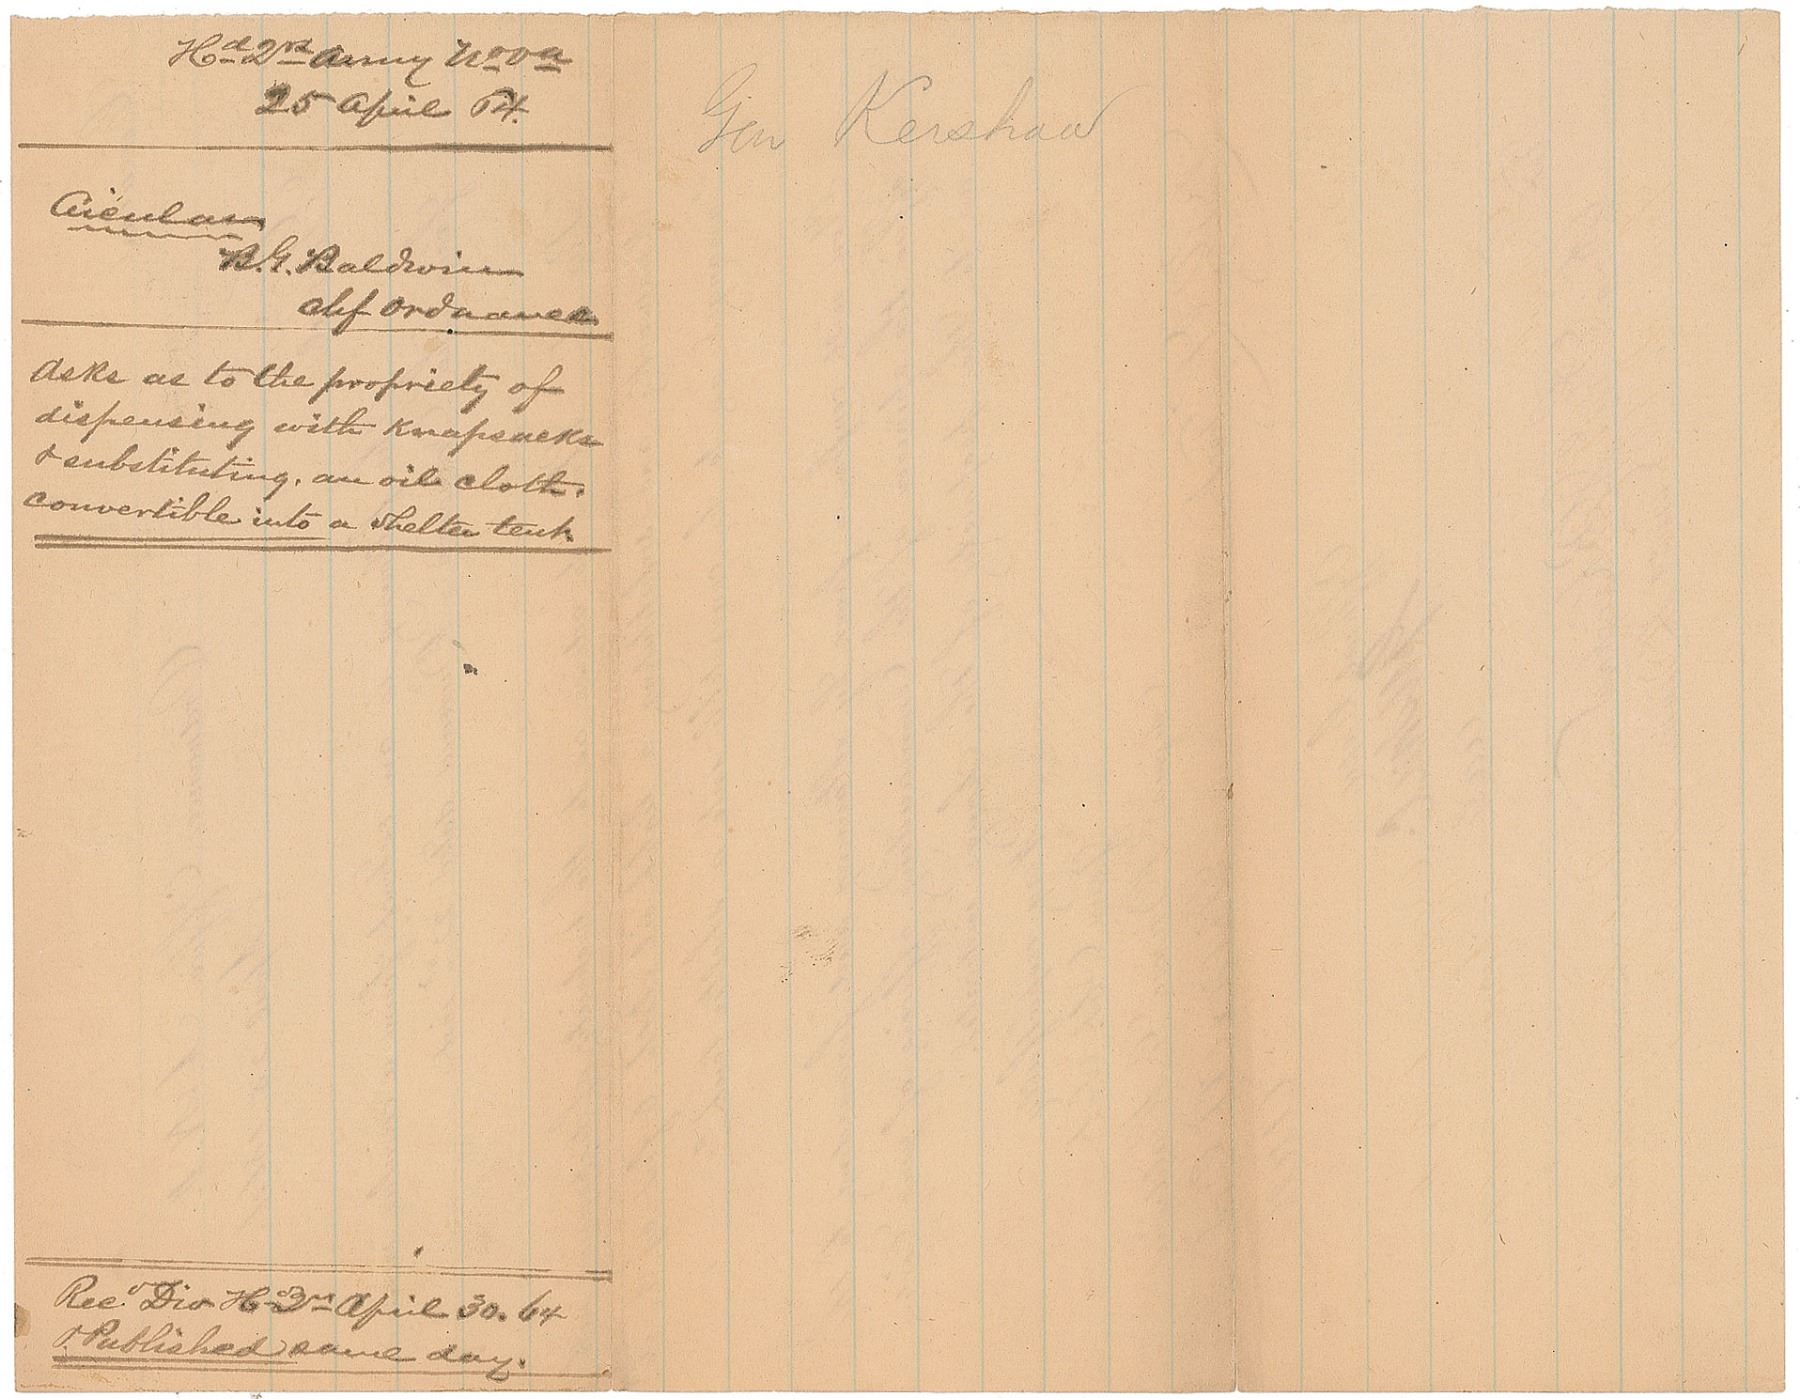 Hd 2rs Army No Va
25 April 64.
Circular
B.G. Baldwin
chf Ordnance
Asks as to the propriety of
dispensing with Knapsacks
& substituting. an oil cloth.
convertible into a shelter tent.
Recd. Div Hd 2rs April 30. 64
& Published same day.
Gen Kershaw